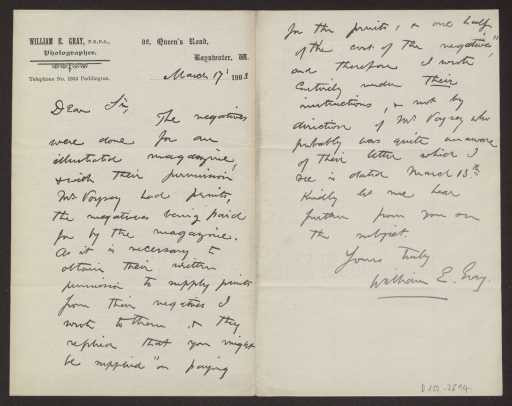 WILLIAM E. GRAY, F.R.P.S.,
Photographer.
Queen's Road,
Bayswater, W.
Telephone No. Paddington.
March 17 1908
Dear Sir, The negatives
were done for an
illustrated magazine,
& with their permission
Mr Voysey had prints,
the negatives being paid
for by the magazine.
As it is necessary to
obtain their written
permission to supply prints
from their negatives I
wrote to them & they
replied that you might
be supplied "on paying
for the prints, & one half
of the cost of the negatives"
and therefore I wrote
entirely under their
instructions, & not by
direction of Mr Voysey who
probably was quite unaware
of their letter which I
see is dated March 13th
Kindly let me hear
further from you on
the subject.
Yours truly
William E. Gray.